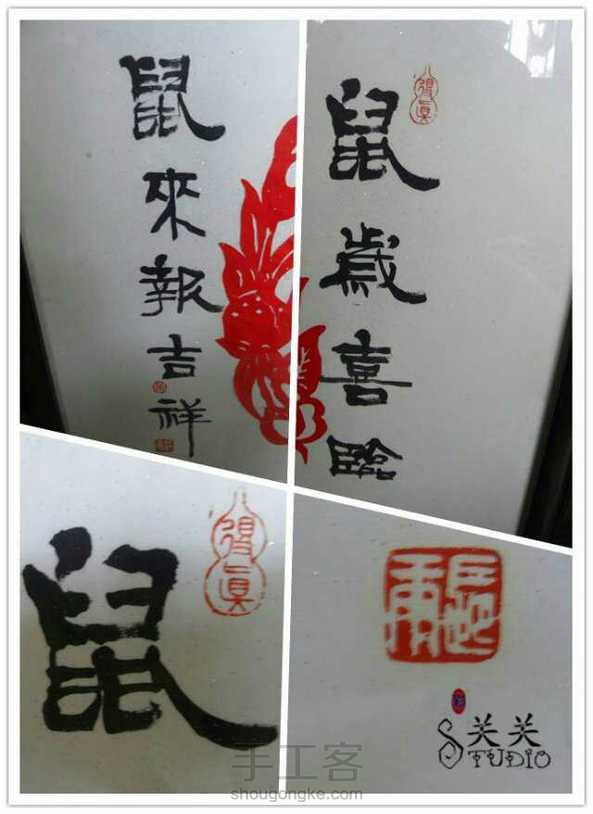 鼠來報吉祥
鼠歲喜臨
鼠
关关
STUDIO
手工客
shougongke.com